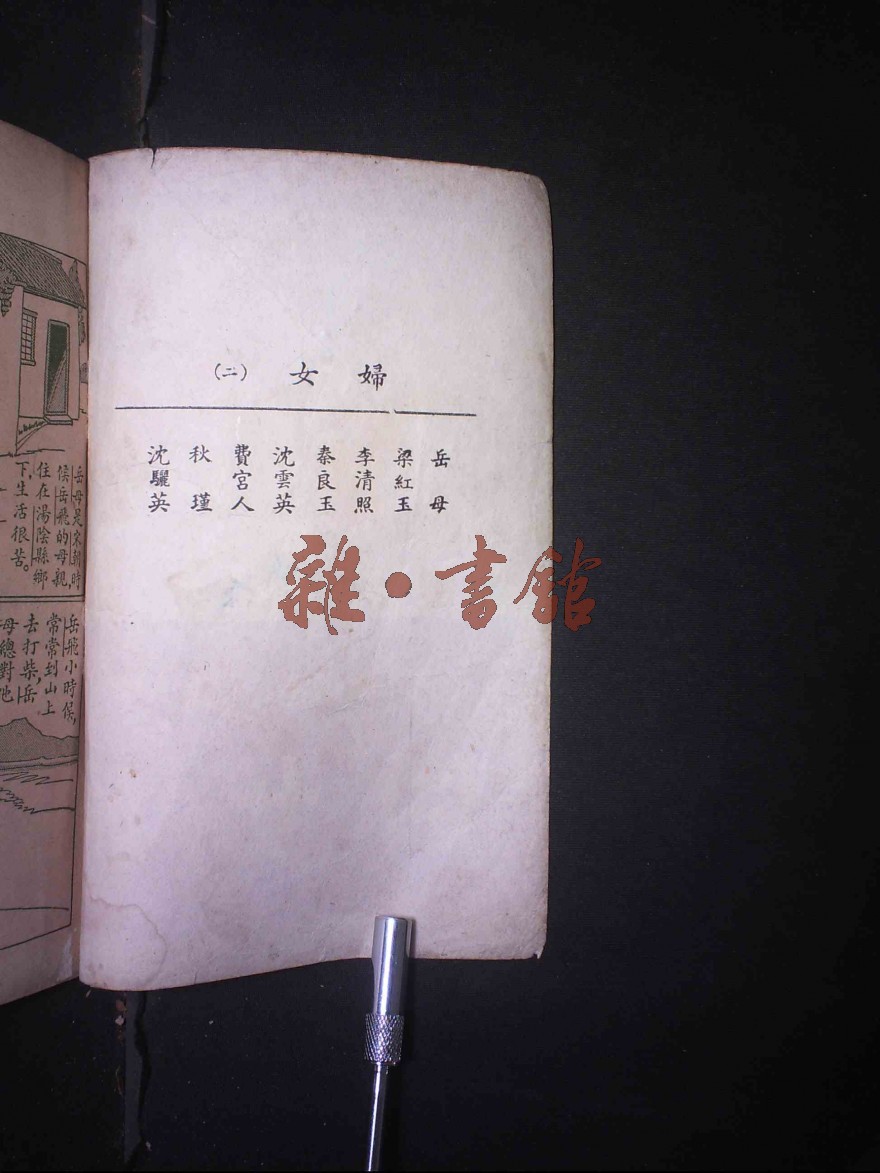 婦女（二）
岳母
梁紅玉
李清照
秦良玉
沈雲英
費宮人
秋瑾
沈驪英
岳母是宋朝時
候岳飛的母親，
住在湯陰縣鄉
下，生活很苦。
岳飛小時候，
常常到山上
去打柴，岳
母總對他
雜·書館